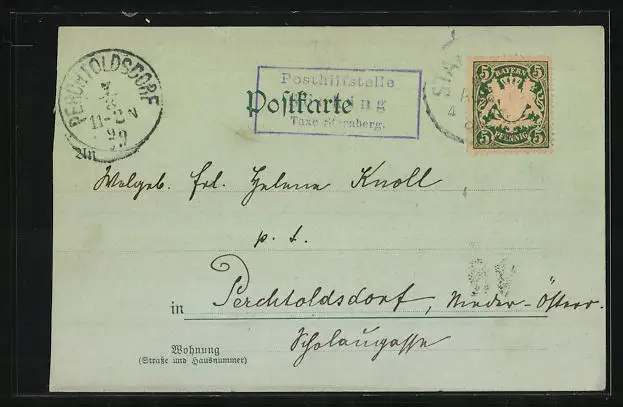 PERCHTOLDSDORF
11-
99
Posthilfstelle
Taxe Starnberg.
Postkarte
BAYERN
5 5
5 5
PFENNIG
An
Wolgeb. Frl. Helene Knoll
p. t.
in Perchtoldsdorf, Nieder-Österr.
Wohnung
(Straße und Hausnummer)